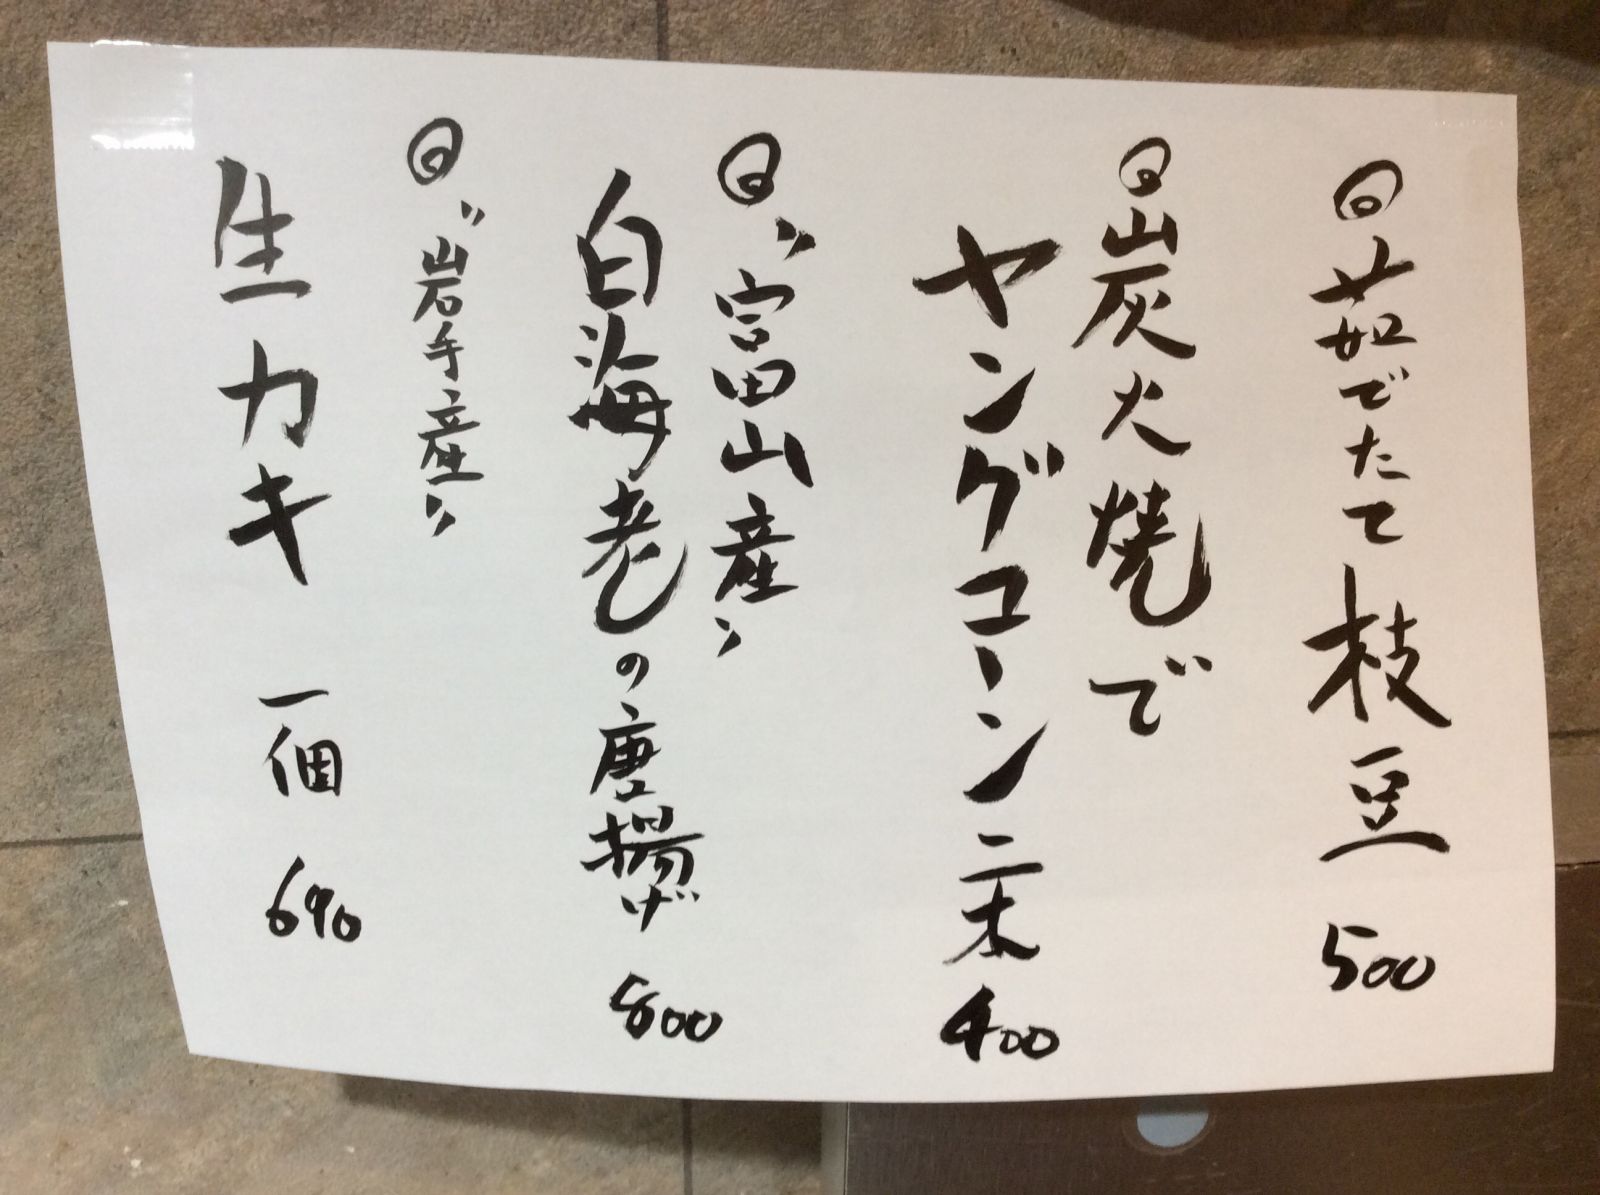 ◎茹でたて枝豆 500
◎炭火焼で
ヤングコーン二本 400
◎〝富山産〟
白海老の唐揚げ 800
◎〝岩手産〟
生カキ 一個 690